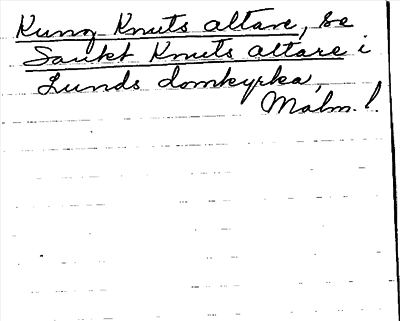 Kung Knuts altare, se
Sankt Knuts altare i
Lunds domkyrka,
Malm. l.